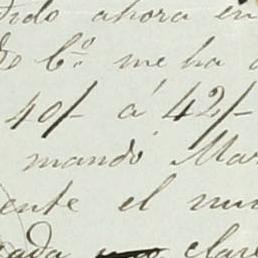 dido ahora en
de C.º me ha
40/- á 42/-
mandó Mar
ente el nu
cada clar